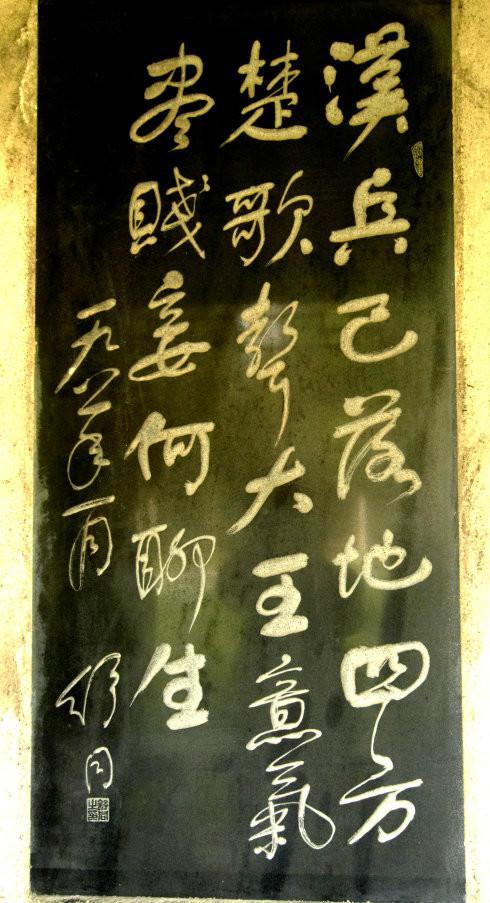 漢兵已落地四方
楚歌聲大王意氣
盡賤妾何聊生
一九八年一月 舒同